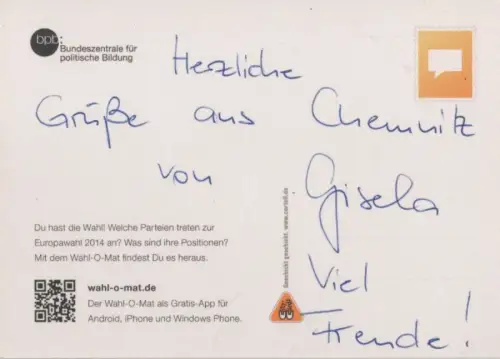 bpb:
Bundeszentrale für
politische Bildung
Herzliche
Grüße aus Chemnitz
von Gisela
Viel
Freude!
Du hast die Wahl! Welche Parteien treten zur
Europawahl 2014 an? Was sind ihre Positionen?
Mit dem Wahl-O-Mat findest Du es heraus.
wahl-o-mat.de
Der Wahl-O-Mat als Gratis-App für
Android, iPhone und Windows Phone.
Geschickt geschickt. www.cartell.de